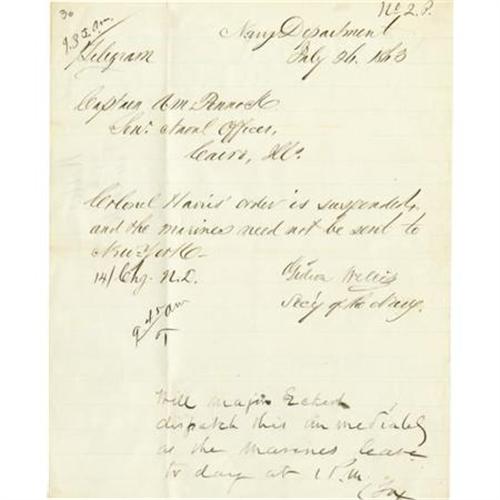 30
No 2. P.
9.35 Am.
Telegram
Navy Department
July 26. 1863
Captain A M Pennock
Senr Naval Officer,
Cairo, Ills.
Colonel Harris' order is suspended,
and the marines need not be sent to
New York
14/ Chg. N.D.
Gideon Welles
Secy of the Navy.
9 45 am
T
Will Major Eckert
dispatch this immediately
as the marines leave
to day at 1 P.M.
Fox